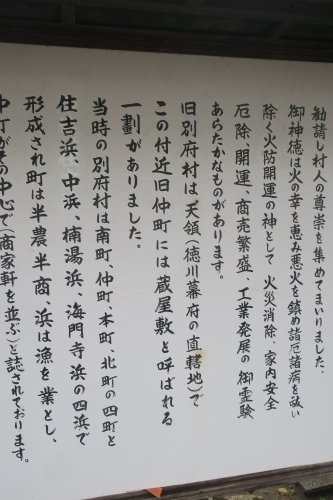 勧請し村人の尊崇を集めてまいりました。
御神徳は火の幸を恵み悪火を鎮め諸厄諸病を祓い
除く火防開運の神として 火災消除、家内安全
厄除、開運、商売繁盛、工業発展の御霊験
あらたかなものがあります。
旧別府村は、天領（徳川幕府の直轄地）で
この付近旧仲町には蔵屋敷と呼ばれる
一劃がありました。
当時の別府村は南町、仲町、本町、北町の四町と
住吉浜、中浜、楠湯浜、海門寺浜の四浜で
形成され町は半農半商、浜は漁を業とし、
中町がその中心で（商家軒を並ぶ）と誌されております。